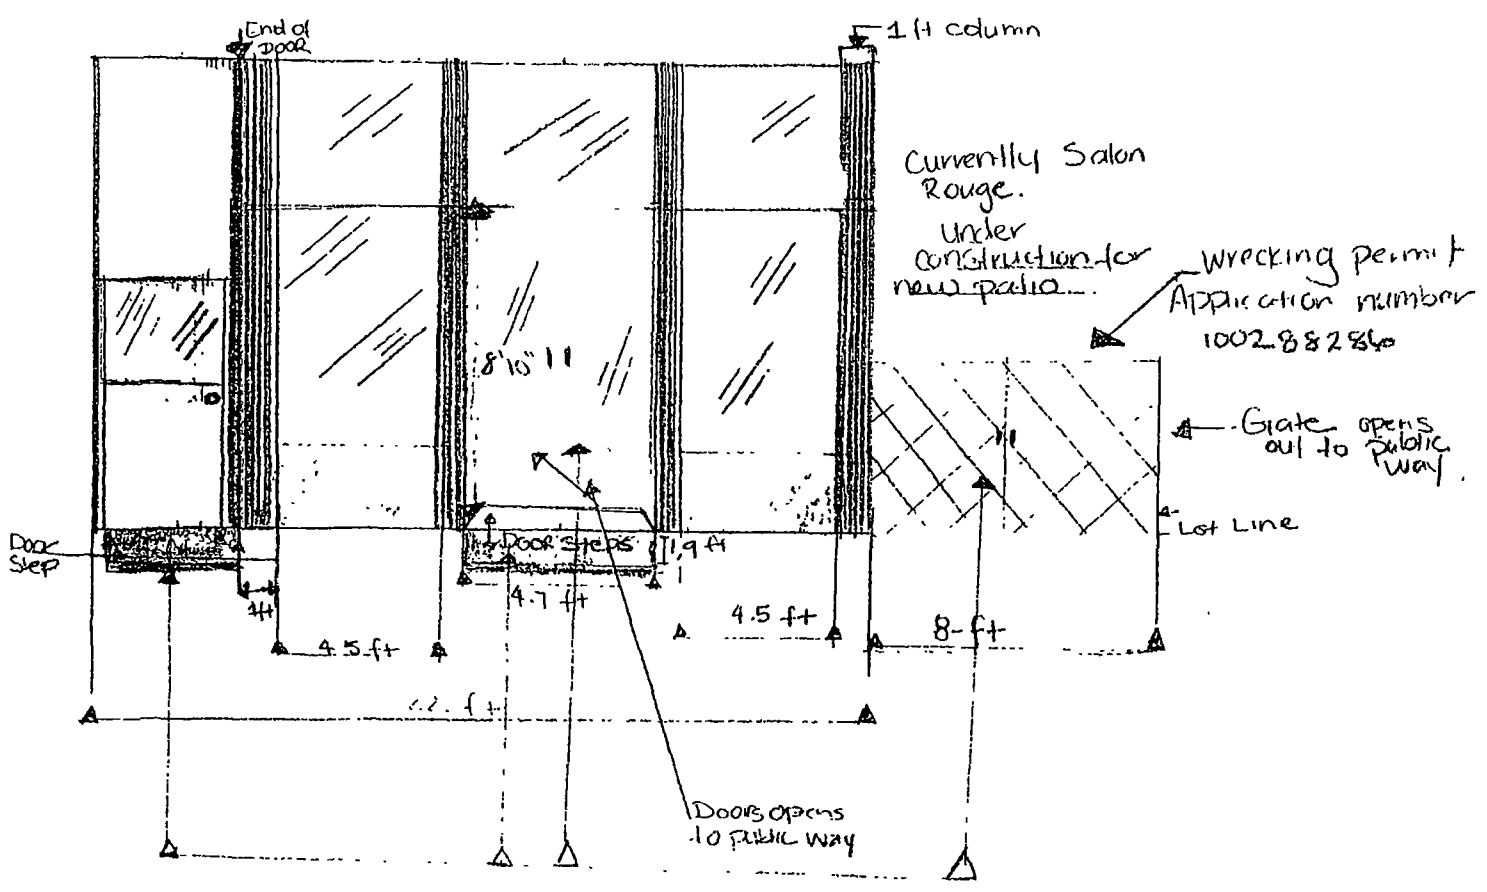 End of
DOOR
1 ft column
Currently Salon
Rouge.
under
construction for
new patio
Wrecking permit
Application number
100288286
8'10"
Gate opens
out to public
way.
Lot Line
Door
Step
DOOR STEPS
1.9 ft
1ft
4.7 ft
4.5 ft
4.5 ft
8 ft
ft
Doors opens
to public way